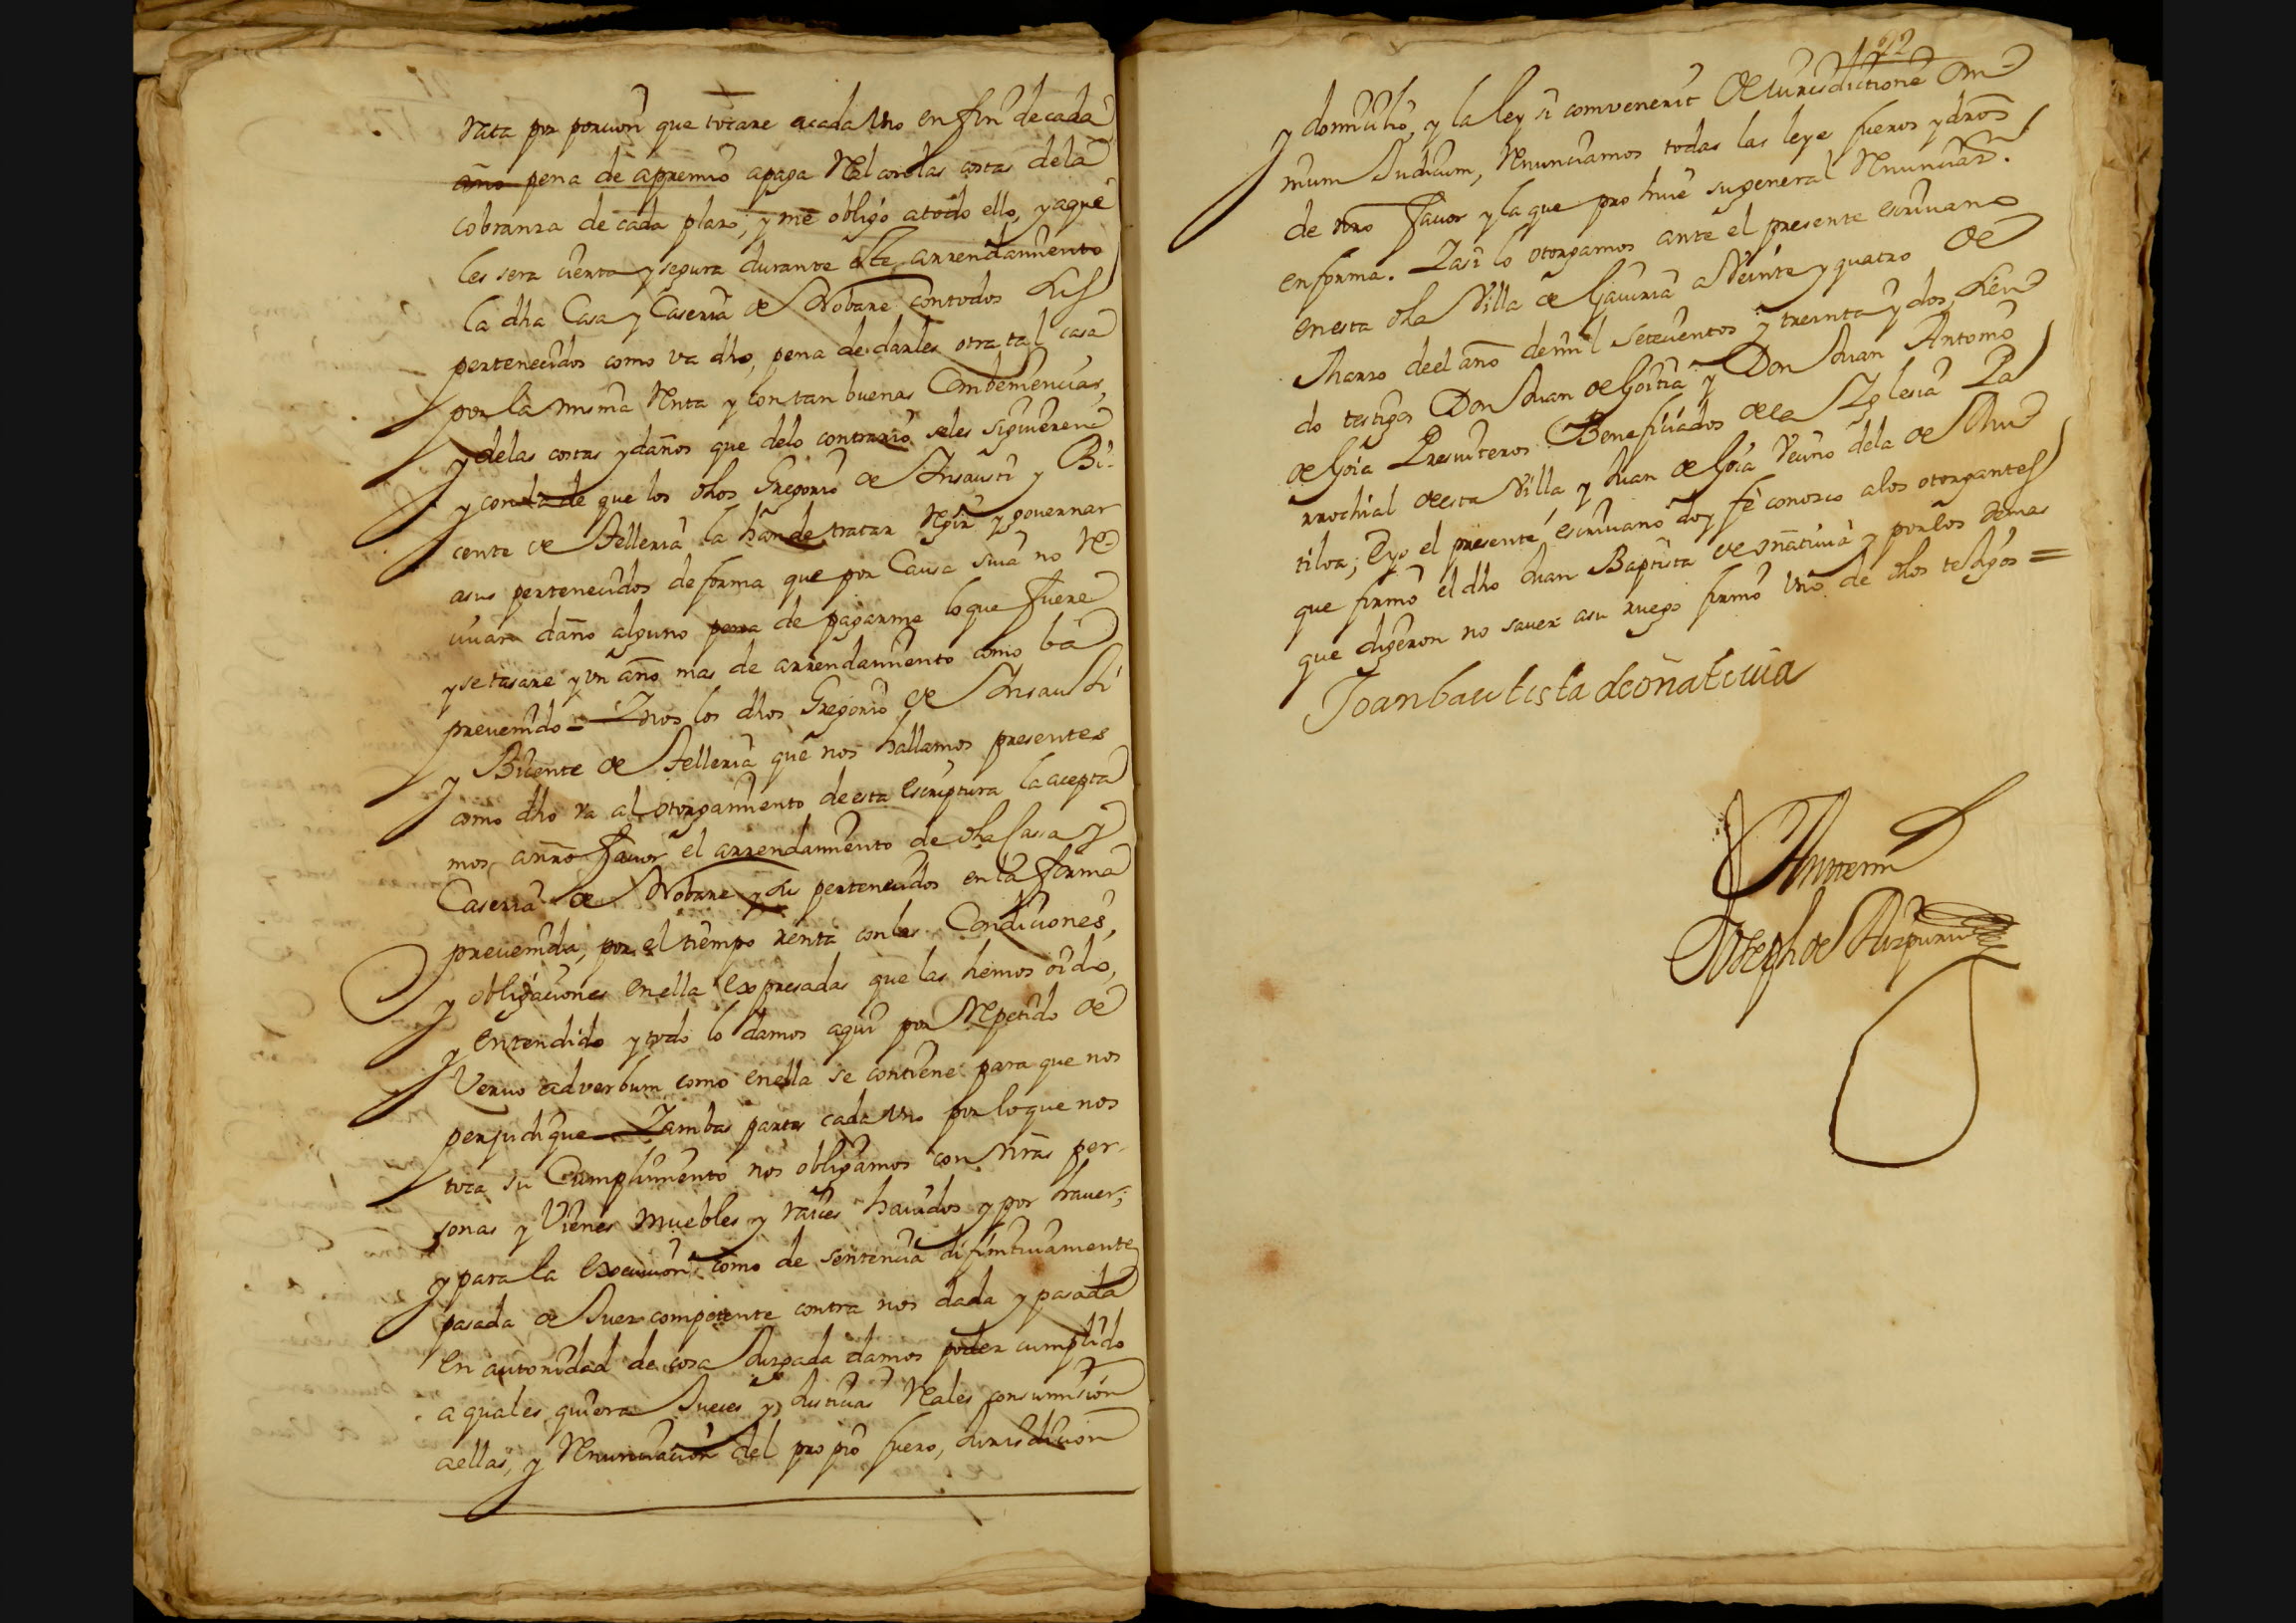 rata por porcion que tocare acada Uno en fin de cada
año pena de apremio apaga Real con las costas dela
cobranza de cada plazo; y me obligo atodo ello, y aque
les sera cierta y segura durante este arrendamiento
la dha Casa y Caseria de Nobare con todos sus
pertenecidos como va dho, pena de darles otra tal casa
por la misma Renta y con tan buenas Combeniencias,
y delas costas y daños que delo contrario seles siguieren
y con la de que los dhos Gregorio de Insausti y Bi-
cente de Telleria la han de tratar Regir y governar
asus pertenecidos de forma que por Causa suia no Re
civan daño alguno pena de pagarme lo que fuere
y se tasare y un año mas de arrendamiento como ba
prevenido = Y nos los dhos Gregorio de Insausti
y Bicente de Telleria que nos hallamos presentes
como dho va al otorgamiento de esta escriptura la acepta
mos, a nro favor el arrendamiento de dha Casa y
Caseria de Nobare y sus pertenecidos en la forma
prevenida, por el tiempo renta con las Condiciones,
y obligaciones en ella Expresadas que las hemos oido,
y entendido y todo lo damos aqui por Repetido de
Vervo adverbum como en ella se contiene para que nos
perjudique = Y ambas partes cada Uno por lo que nos
toca su Cumplimiento nos obligamos con nras per-
sonas y Vienes muebles y raices havidos y por haver;
y para la Execucion como de sentencia difinitivamente
pasada de Juez competente contra nos dada y pasada
en autoridad de cosa Juzgada damos poder cumplido
a quales quiera Jueces y Justicias Reales con sumision
aellas, y Renunciacion del propio fuero, Jurisdicion
22
y domicilio, y la ley si comvenerit de iurisdictione om
nium Judicum, Renunciamos todas las leyes fueros y dros
de nro favor y la que prohive su general Renunciaon
en forma. Y asi lo otorgamos ante el presente escrivano
en esta dha Villa de Gaviria a Veinte y quatro de
Marzo de el año de mil setecientos y treinta y dos, sien
do testigos Don Juan de Goitia y Don Juan Antonio
de Goia Presviteros Beneficiados de la Yglesia Pa
rrochial de esta Villa, y Juan de Goia Vecino dela de Mu
tiloa; E yo el presente escrivano doy fe conozco a los otorgantes
que firmo el dho Juan Baptista de Oñativia y por los demas
que digeron no saver asu ruego firmo Uno de dhos testigos =
Joan bautista de oñativia
Ante mi
Joseph de Aizpuru